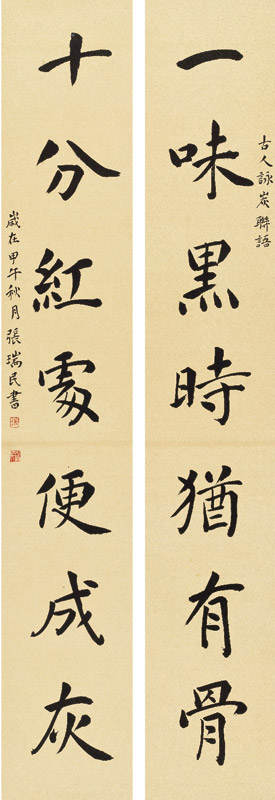 古人詠炭聯語
一味黑時猶有骨
十分紅處便成灰
歲在甲午秋月張瑞民書